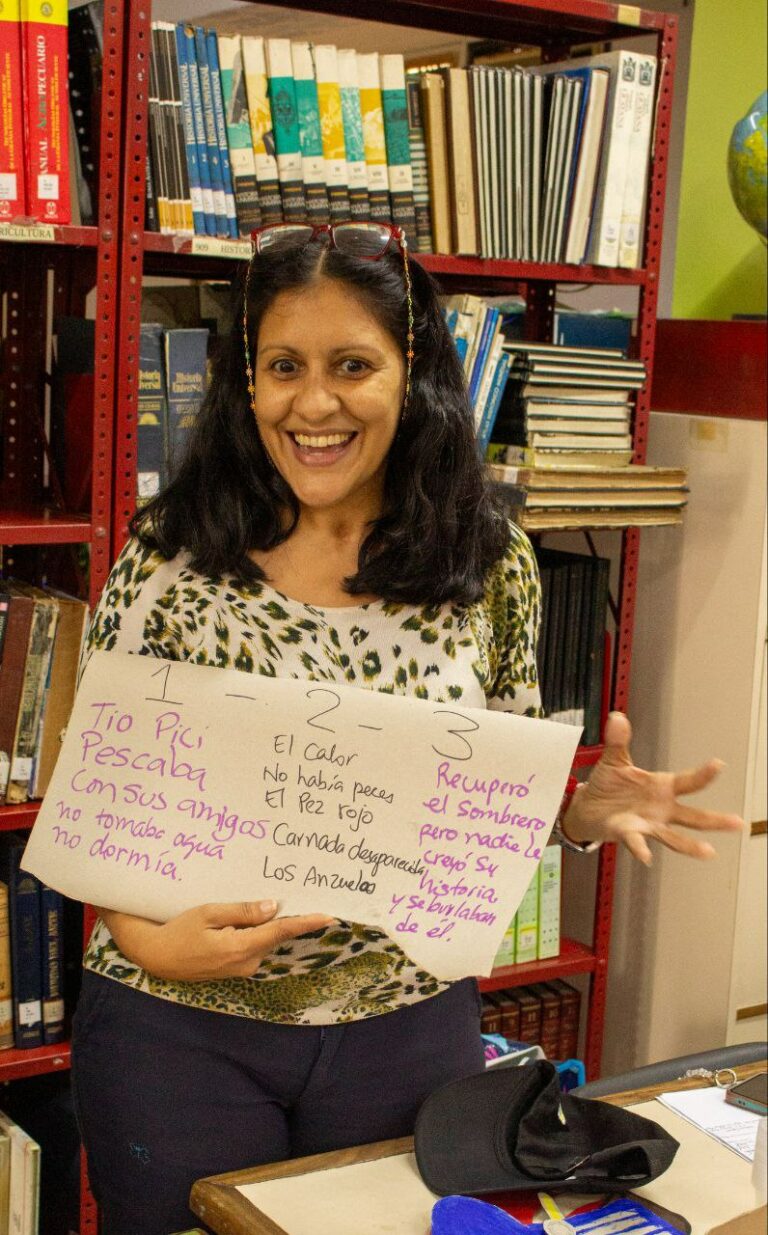 MANUAL AGROPECUARIO
AGRICULTURA
909 HISTORI
HISTORIA UNIVERSAL
HISTORIA UNIVERSAL
Historia
Universal
Historia
Universal
1 - 2 - 3
Tio Pici
Pescaba
con sus amigos
no tomaba agua
no dormía.
El Calor
No había peces
El Pez rojo
Carnada desaparecida
Los Anzuelos
Recuperó
el sombrero
pero nadie le
creyó su
historia
y se burlaban
de él.